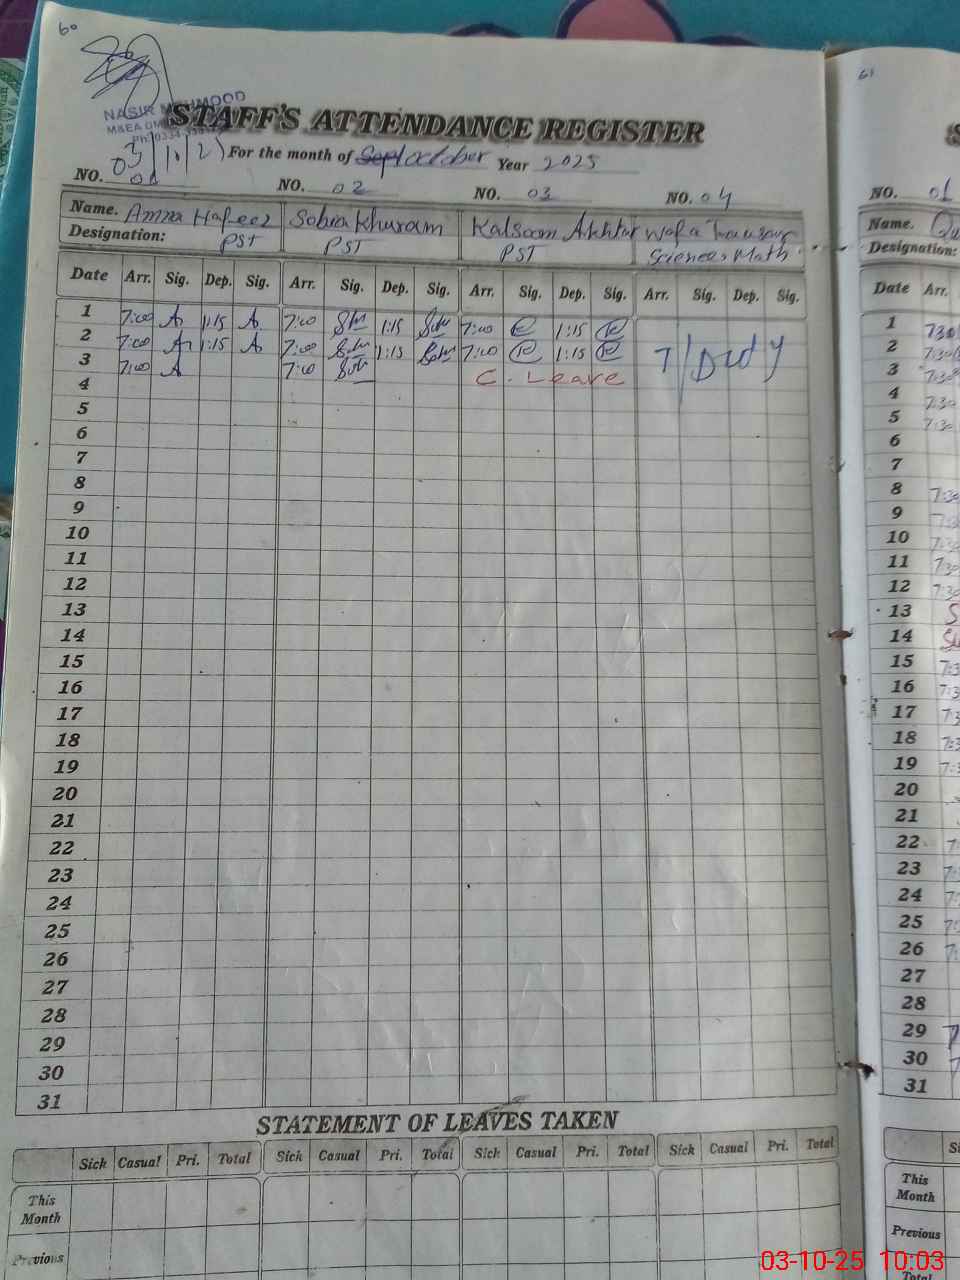 60
NASIR MEHMOOD
STAFF'S ATTENDANCE REGISTER
03/10/25 For the month of October Year 2025
NO. 01 NO. 02 NO. 03 NO. 04
Name. Amna Hafeez Sobia Khuram Kalsoom Akhtar Wafa
Designation: PST PST PST Science Math
Date Arr. Sig. Dep. Sig. Arr. Sig. Dep. Sig. Arr. Sig. Dep. Sig. Arr. Sig. Dep. Sig.
1 7:00 A 1:15 A 7:00 1:15 7:00 1:15
2 7:00 A 1:15 A 7:00 1:15 7:00 1:15 T/Duty
3 7:00 A 7:00 C. Leave
4
5
6
7
8
9
10
11
12
13
14
15
16
17
18
19
20
21
22
23
24
25
26
27
28
29
30
31
STATEMENT OF LEAVES TAKEN
Sick Casual Pri. Total Sick Casual Pri. Total Sick Casual Pri. Total Sick Casual Pri. Total
This Month
Previous
61
NO. 01
Name.
Designation:
Date Arr.
1 7:30
2 7:30
3 7:30
4 7:30
5 7:30
6
7
8 7:30
9 7:30
10 7:30
11 7:30
12 7:30
13
14
15
16
17
18
19
20
21
22
23
24
25
26
27
28
29
30
31
This Month
Previous
Total
03-10-25 10:03